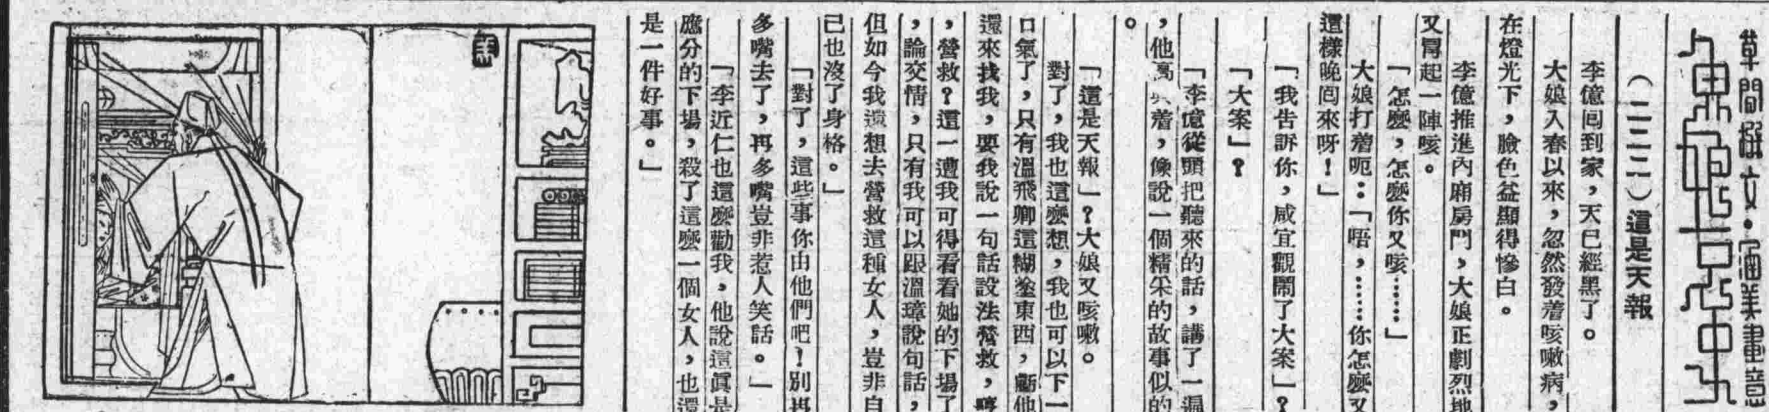 草間撰文·涵美畫意
(二三二)這是天報
李億囘到家,天已經黑了。
大娘入春以來,忽然發着咳嗽病,
在燈光下,臉色益顯得慘白。
李億推進內廂房門,大娘正劇烈地
又冒起一陣咳。
「怎麼,怎麼你又咳……」
大娘打着呃:「唔,……你怎麼又
這樣晚囘來呀!」
「我告訴你,咸宜觀鬧了大案」?
「大案」?
「李億從頭把聽來的話,講了一遍
,他高興着,像說一個精采的故事似的
。
「這是天報」?大娘又咳嗽。
對了,我也這麼想,我也可以下一
口氣了,只有溫飛卿這糊塗東西,虧他
還來找我,要我說一句話設法營救,哼
,營救?這一遭我可得看看她的下場了
,論交情,只有我可以跟溫璋說句話,
但如今我還想去營救這種女人,豈非自
己也沒了身格。」
「對了,這些事你由他們吧!別再
多嘴去了,再多嘴豈非惹人笑話。」
「李近仁也這麼勸我,他說這眞是
應分的下場,殺了這麼一個女人,也還
是一件好事。」